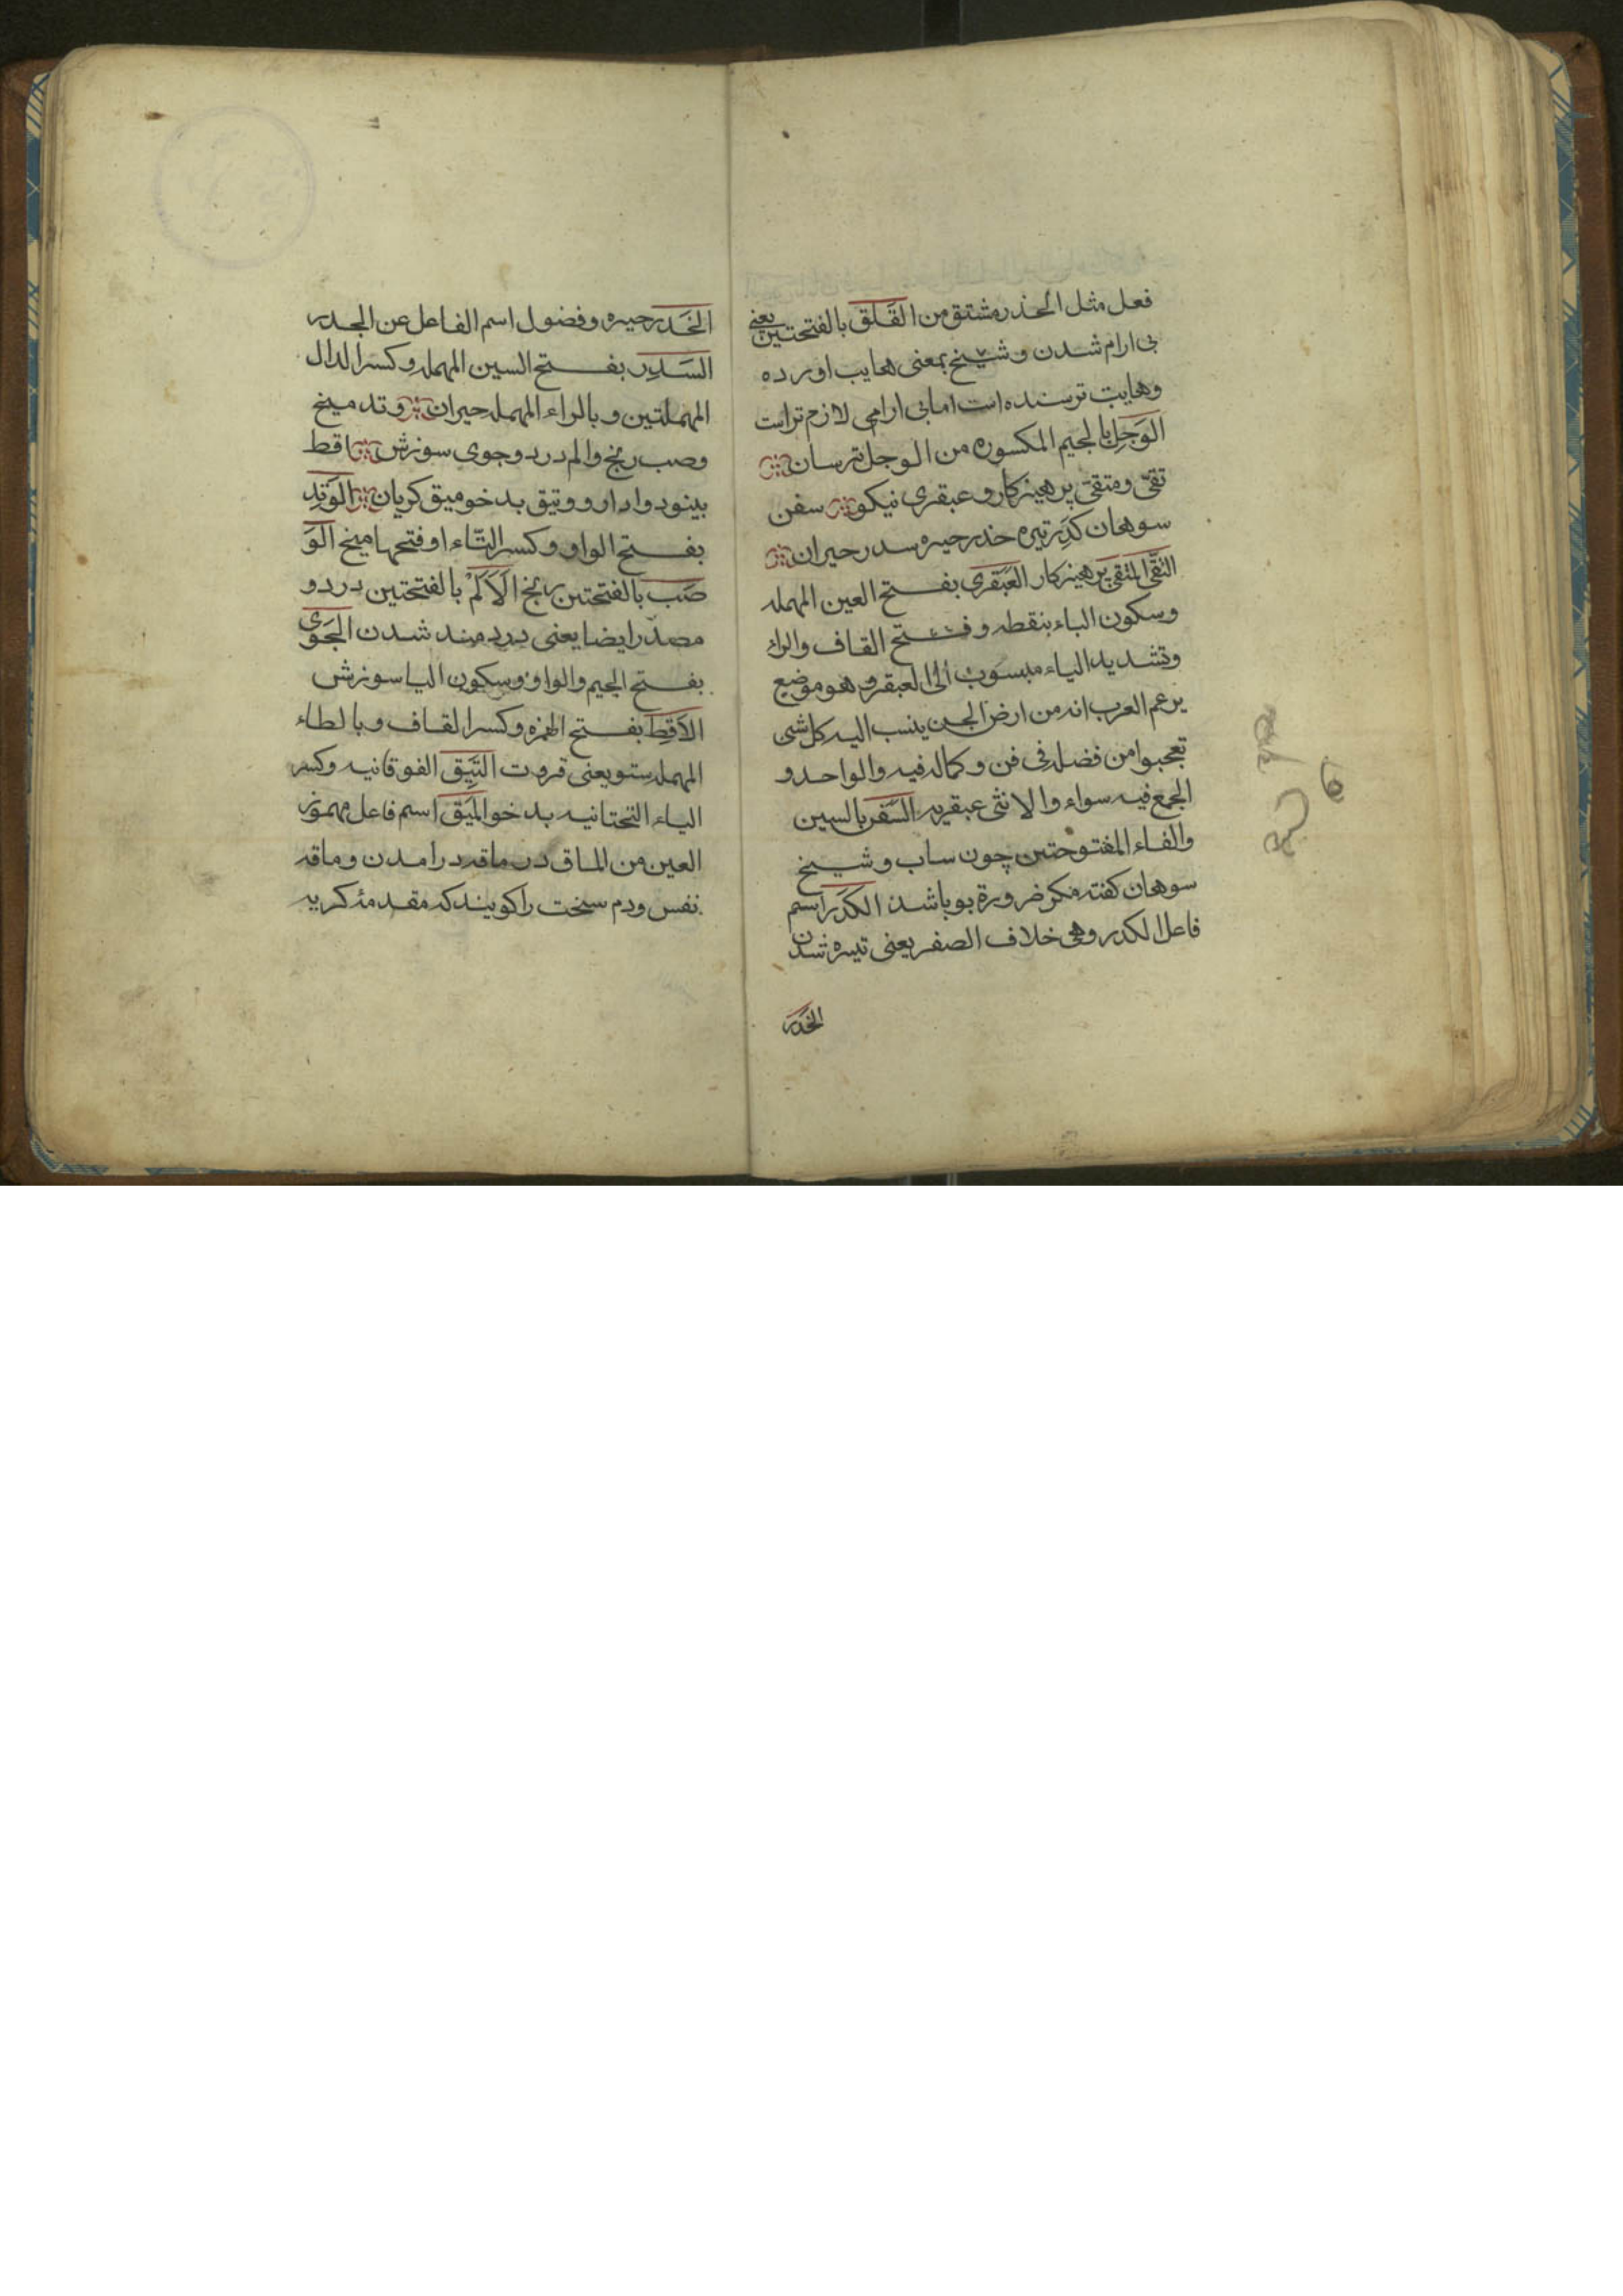 فعل مثل الحذر مشتق من القَلَق بالفتحتين یعنی
بی ارام شدن و شیخ بمعنی هایب اورده
وهایب ترسنده است اما بی ارامی لازم تر است
الوَجِل بالجیم المکسوره من الوجل ترسان
تقیّ ومتقیّ پرهیزکار و عبقری نیکو سفن
سوهان کَدِر تیره خدر حیره سدر حیران
التقّی المتقی پرهیزکار العَبْقَری بفتح العین المهمله
وسکون الباء بنقطه وفتح القاف والراء
وتشدید الیاء منسوب الی العبقر و هو موضع
یزعم العرب انه من ارض الجن ینسب الیه کل شی
تعجبوا من فضله فی فن و کماله فیه والواحد و
الجمع فیه سواء والانثی عبقریه السَّفَن بالسین
والفاء المفتوحتین چون ساب و شیخ
سوهان کفته مکر ضرورة بو باشد الکَدَر اسم
فاعل الکدر وهی خلاف الصفر یعنی تیره شدن
الخَدَر
الخَدَر حیره وفضول اسم الفاعل عن الجدر
السَدِر بفتح السین المهمله و کسر الدال
المهملتین و بالراء المهمله حیران وتد میخ
وصب رنج والم درد وجوی سوزش اقط
بینود وادار و وتیق بدخو میق کریان الوَتِد
بفتح الواو و کسر التّاء او فتحها میخ الوَ
صَب بالفتحتین رنج الاَلَمْ بالفتحتین درد و
مصدر ایضا یعنی درد مند شدن الجَوَی
بفتح الجیم والواو وسکون الیا سوزش
الاَقِط بفتح الهمزه و کسر القاف و بالطاء
المهمله ستو یعنی قروت التَیِّق الفوقانیه وکسر
الیاء التحتانیه بدخو المَیَق اسم فاعل مهموز
العین من الماق در ماقه درامدن و ماقه
نفس ودم سخت را کویند که مقدمهٔ کریه